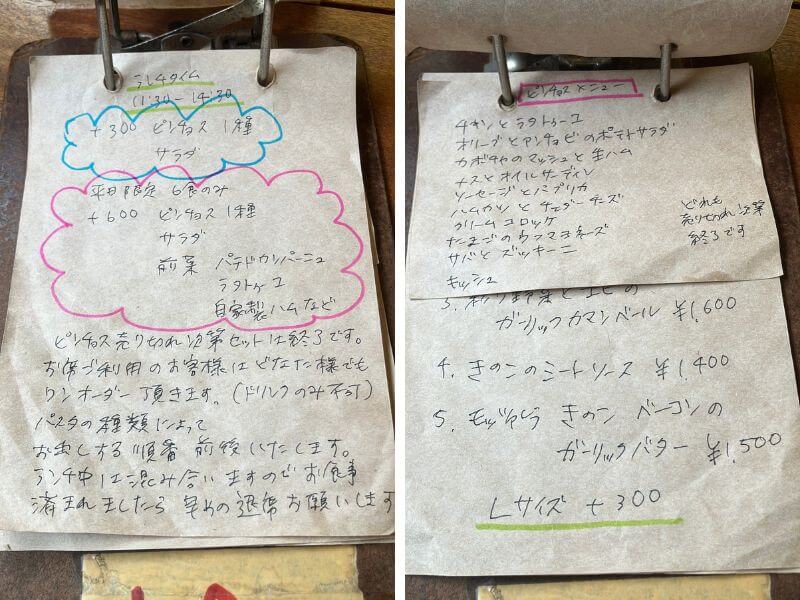 ランチタイム
11:30-14:30
+300 ピンチョス 1種
サラダ
平日限定 6食のみ
+600 ピンチョス 1種
サラダ
前菜 パテドカンパーニュ
ラタトゥユ
自家製ハムなど
ピンチョス売り切れ次第セットは終了です。
お席ご利用のお客様はどなた様でも
ワンオーダー頂きます。(ドリンクのみ不可)
パスタの種類によって
お出しする順番 前後いたします。
ランチ中は混み合いますのでお食事
済まれましたら 早めの退席お願いします
ピンチョスメニュー
チキンとラタトゥーユ
オリーブとアンチョビのポテトサラダ
カボチャのマッシュと生ハム
ナスとオイルサーディン
ソーセージとパプリカ
ハムカツとチェダーチーズ
クリームコロッケ
たまごのウフマヨネーズ
サバとズッキーニ
キッシュ
どれも
売り切れ次第
終了です
3. と エビの
ガーリックカマンベール ¥1,600
4. きのこのミートソース ¥1,400
5. モッツァレラ きのこ ベーコンの
ガーリックバター ¥1,500
Lサイズ +300